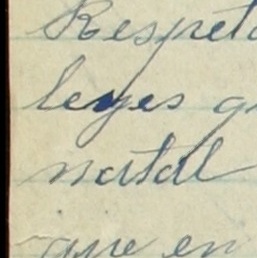 Respeto
leyes q
natal
que en